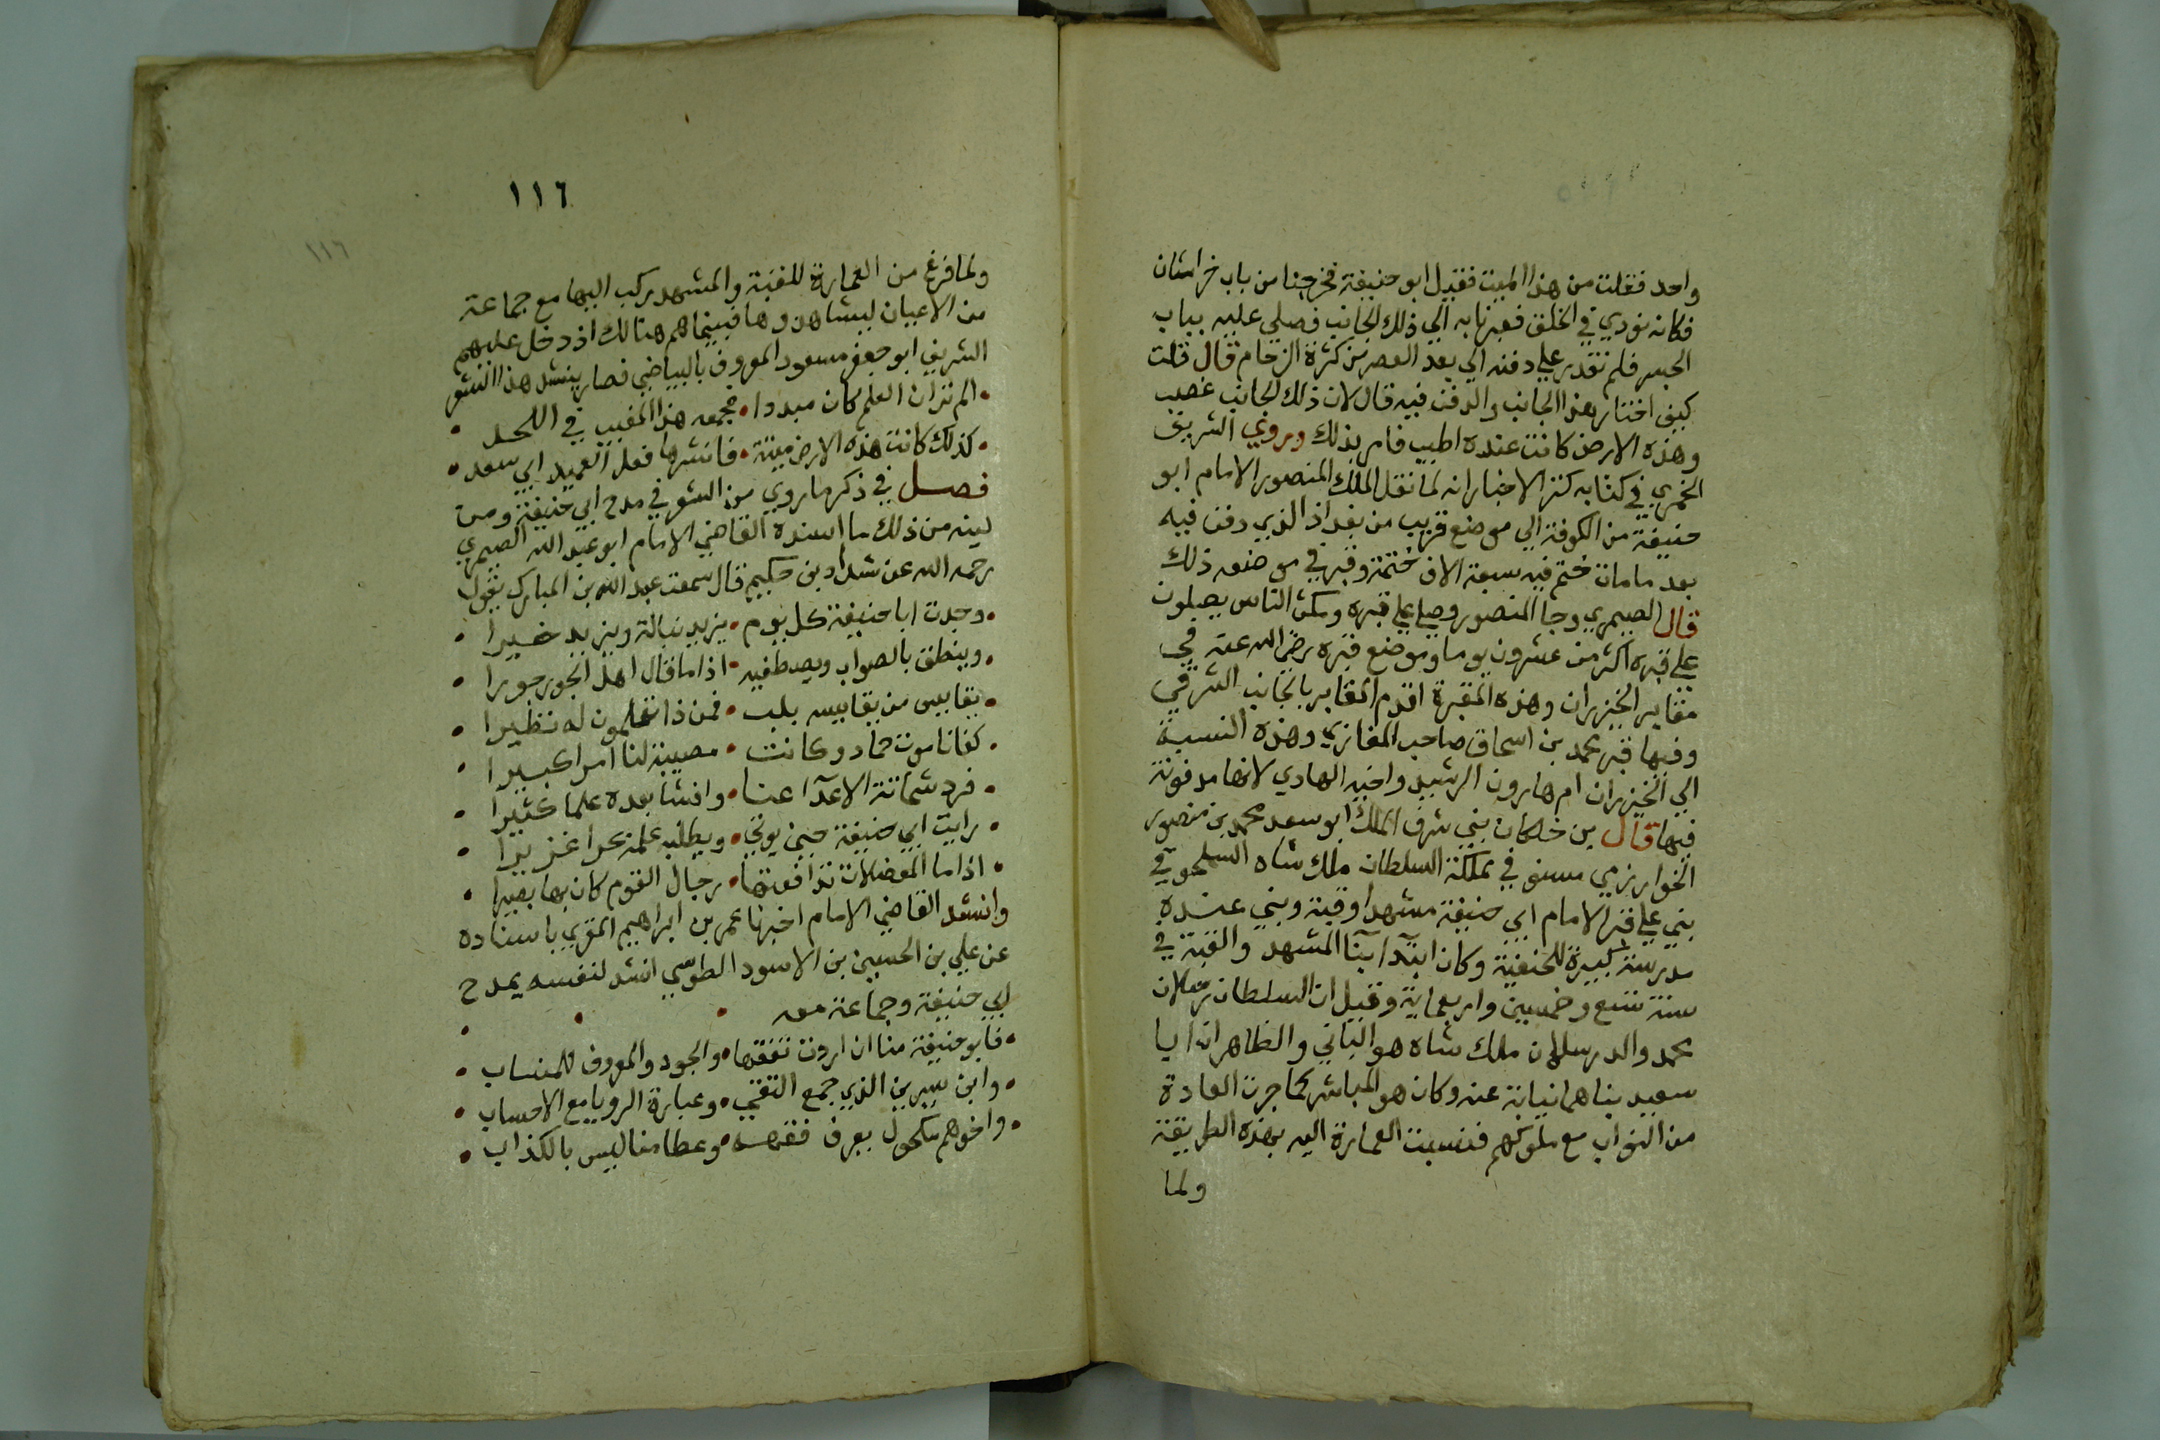 واحد فقلت من هذا الميت فقيل ابو حنيفة فخرجنا من باب خراسان
فكانه نودي في الخلق فعبرنا به الي ذلك الجانب فصلي عليه بباب
الجسر فلم نقدر علي دفنه الي بعد العصر من كثرة الزحام قال قلت
كيف اختار هذا الجانب والدفن فيه قال لان ذلك الجانب غصب
وهذه الارض كانت عنده اطيب فامر بذلك وروي الشريف
في كتابه كنز الاخبار انه لما نقل الملك المنصور الامام ابو
حنيفة من الكوفة الي موضع قريب من بغداد الذي دفن فيه
بعد ما مات ختم فيه سبعة الاف ختمة وقبره في موضعه ذلك
قال الصيمري وجا المنصور وصلي علي قبره ومكث الناس يصلون
علي قبره اكثر من عشرون يوما وموضع قبره رضي الله عنه في
مقابر الخيزران وهذه المقبرة اقدم المقابر بالجانب الشرقي
وفيها قبر محمد بن اسحاق صاحب المغازي وهذه النسبة
الي الخيزران ام هارون الرشيد واخيه الهادي لانها مدفونة
فيها قال بن خلكان بني شرف الملك ابو سعد محمد بن منصور
الخوارزمي مستوفي مملكة السلطان ملك شاه السلجوقي
بني علي قبر الامام ابي حنيفة مشهدا وقبة وبني عنده
مدرسة كبيرة للحنفية وكان ابتدآ بنآ المشهد والقبة في
سنة تسع وخمسين واربعماية وقيل ان السلطان
محمد والد ملك شاه هو الباني والظاهر ان ابا
سعيد بناهما نيابة عنه وكان هو المباشر كما جرت العادة
من النواب مع ملوكهم فنسبت العمارة اليه بهذه الطريقة
ولما
١١٦
١١٦
ولما فرغ من العمارة للقبة والمشهد ركب اليها مع جماعة
من الاعيان ليشاهدوها فبينما هم هنالك اذ دخل عليهم
الشريف ابو جعفر مسعود المعروف بالبياضي فصار ينشد هذا الشعر
الم تر ان العلم كان مبددا • فجمعه هذا المغيب في اللحد •
كذلك كانت هذه الارض ميتة • فانشرها فعل العميد ابي سعد •
فصل في ذكر ما روي من الشعر في مدح ابي حنيفة ومن
ذلك ما اسنده القاضي الامام ابو عبد الله الصيمري
رحمه الله عن شداد بن حكيم قال سمعت عبد الله بن المبارك يقول
• وجدت ابا حنيفة كل يوم • يزيد نبالة ويزيد خيرا •
• وينطق بالصواب ويصطفيه • اذا ما قال اهل الجور جورا •
• يقايس من يقايسه بلب • فمن ذا تعلمون له نظيرا •
• كفانا موت حماد وكانت • مصيبته لنا امرا كبيرا •
• فرد شماتة الاعدآ عنا • وافشا بعده علما كثيرا •
• رايت ابي حنيفة حين يوتي • ويطلب علمه بحرا غزيرا •
• اذا ما المعضلات تدافعتها • رجال القوم كان بها بصيرا •
وانشد القاضي الامام اخبرنا عمر بن ابراهيم المقري باسناده
عن علي بن الحسين بن الاسود الطوسي انشد لنفسه يمدح
ابي حنيفة وجماعة معه
• فابو حنيفة منا ان اردت تفقها • والجود والمعروف للمنساب •
• وابن سيرين الذي جمع التقي • وعبارة الرويا مع الاحساب •
• واخوهم مكحول يعرف فقهه • وعطا منا ليس بالكذاب •